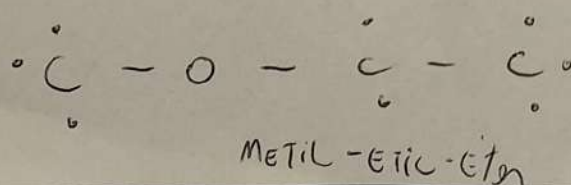 C - O - C - C
METIL - ETIC - Éter